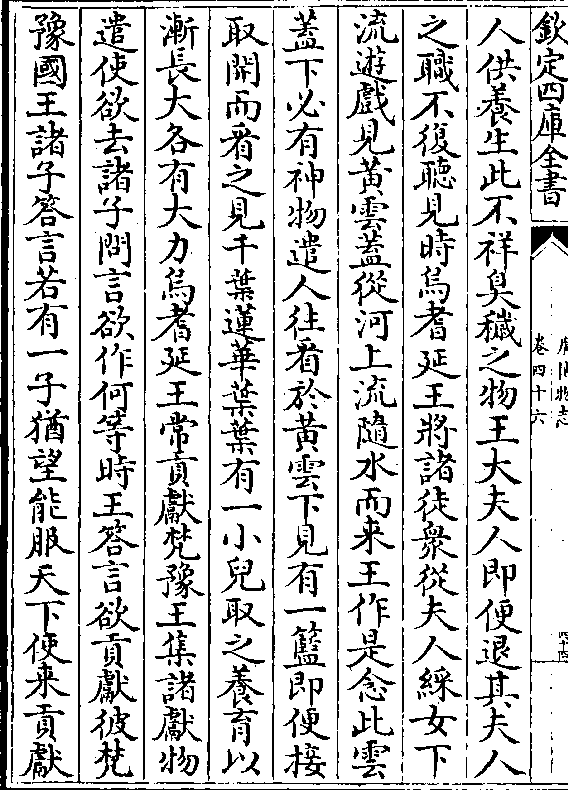 欽定四庫全書
廣博物志
卷四十六
四十四
人供養生此不祥臭穢之物王大夫人即便退其夫人
之職不復聽見時烏耆延王將諸徒衆從夫人綵女下
流遊戲見黄雲蓋從河上流隨水而来王作是念此雲
蓋下必有神物遣人往看於黄雲下見有一籃即便接
取開而看之見千葉蓮華葉葉有一小兒取之養育以
漸長大各有大力烏耆延王常貢獻梵豫王集諸獻物
遣使欲去諸子問言欲作何等時王答言欲貢獻彼梵
豫國王諸子答言若有一子猶望能服天下使来貢獻